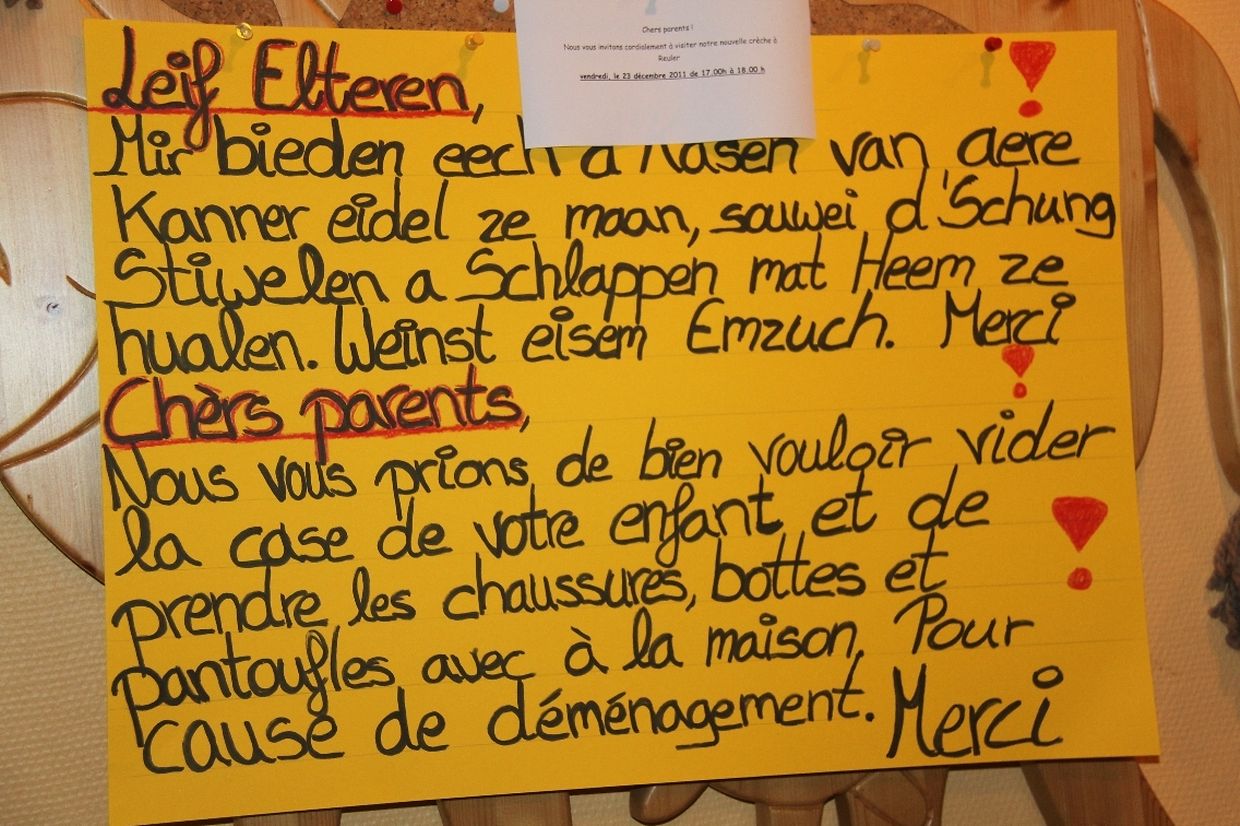 Chers parents !
Nous vous invitons cordialement à visiter notre nouvelle crèche à
Reuler
vendredi, le 23 décembre 2011 de 17.00h à 18.00 h
Leif Elteren,
Mir bieden eech d'Kasen van aere
Kanner eidel ze maan, souwei d'Schung
Stiwelen a Schlappen mat Heem ze
hualen. Weinst eisem Emzuch. Merci !
Chèrs parents,
Nous vous prions de bien vouloir vider
la case de votre enfant et de
prendre les chaussures, bottes et
pantoufles avec à la maison. Pour
cause de déménagement. Merci